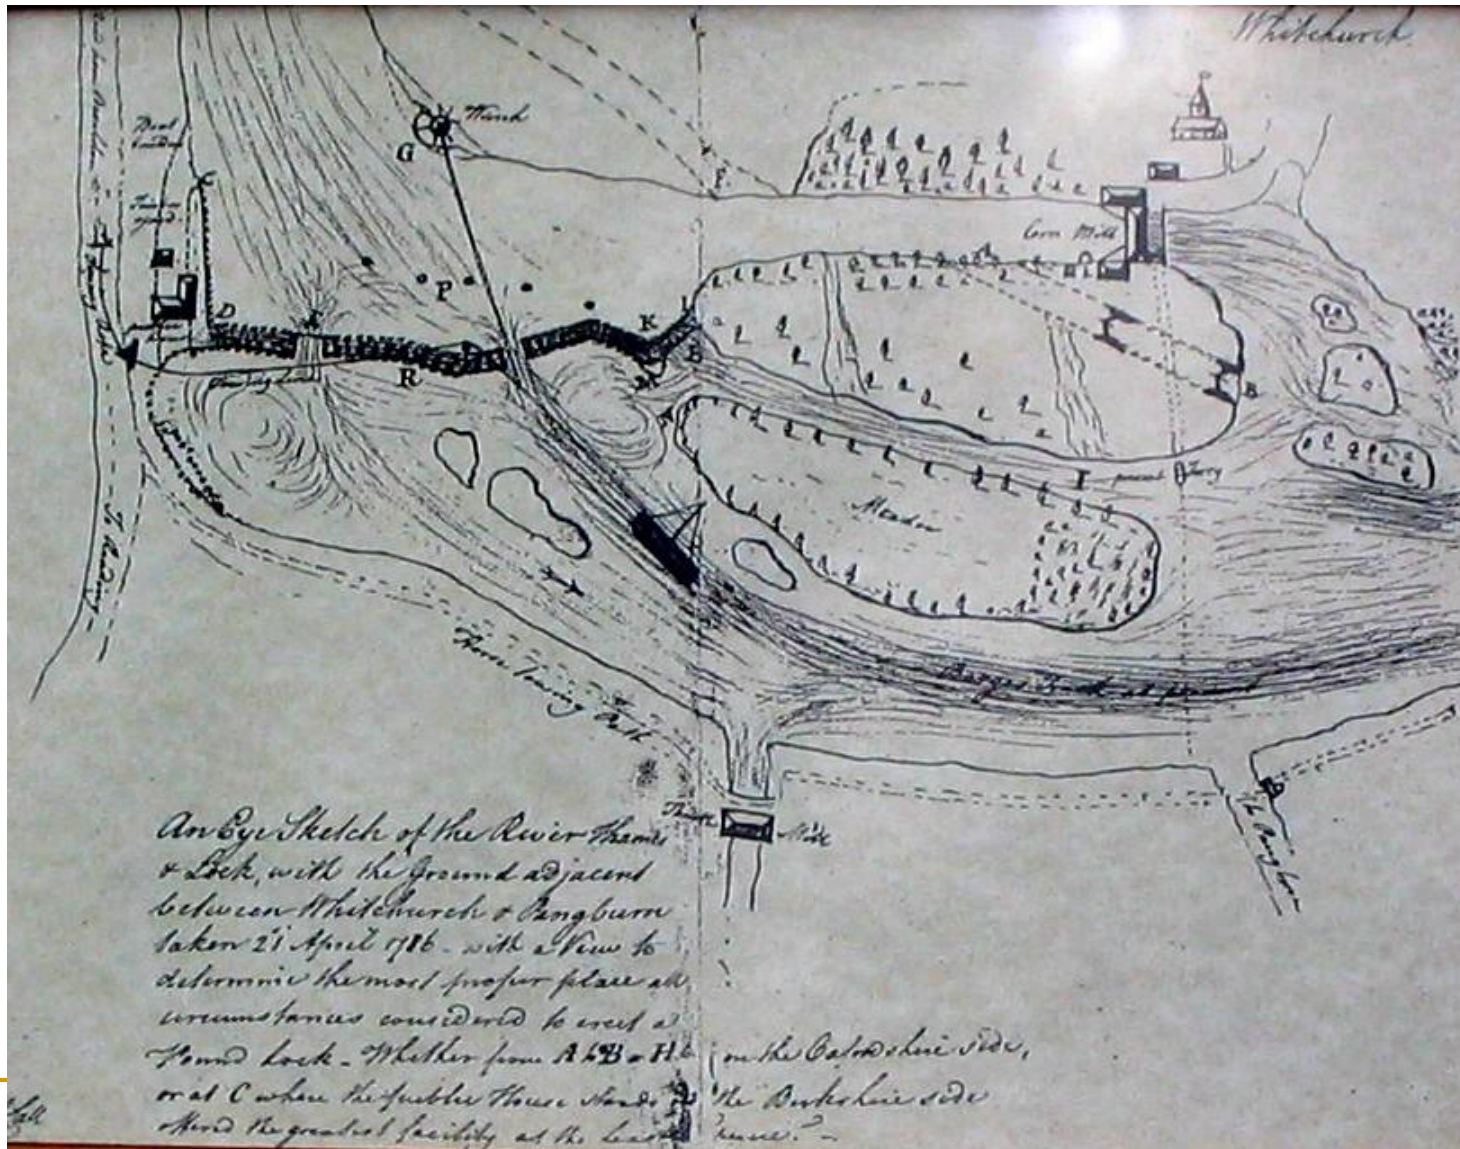 Whitchurch
Winch
G
F
Corn Mill
P
D
K
R
M
B
B
present Ferry
Meadow
To Reading
Barges Track at present
Horse towing Path
Mill
An Eye Sketch of the River Thames
& Lock, with the Ground adjacent
between Whitchurch & Pangburn
taken 21 April 1786 - with a View to
determine the most proper place all
circumstances considered to erect a
Pound Lock - Whether from A to B or H on the Oxfordshire side,
or at C where the public House stands the Berkshire side
offered the greatest facility at the least